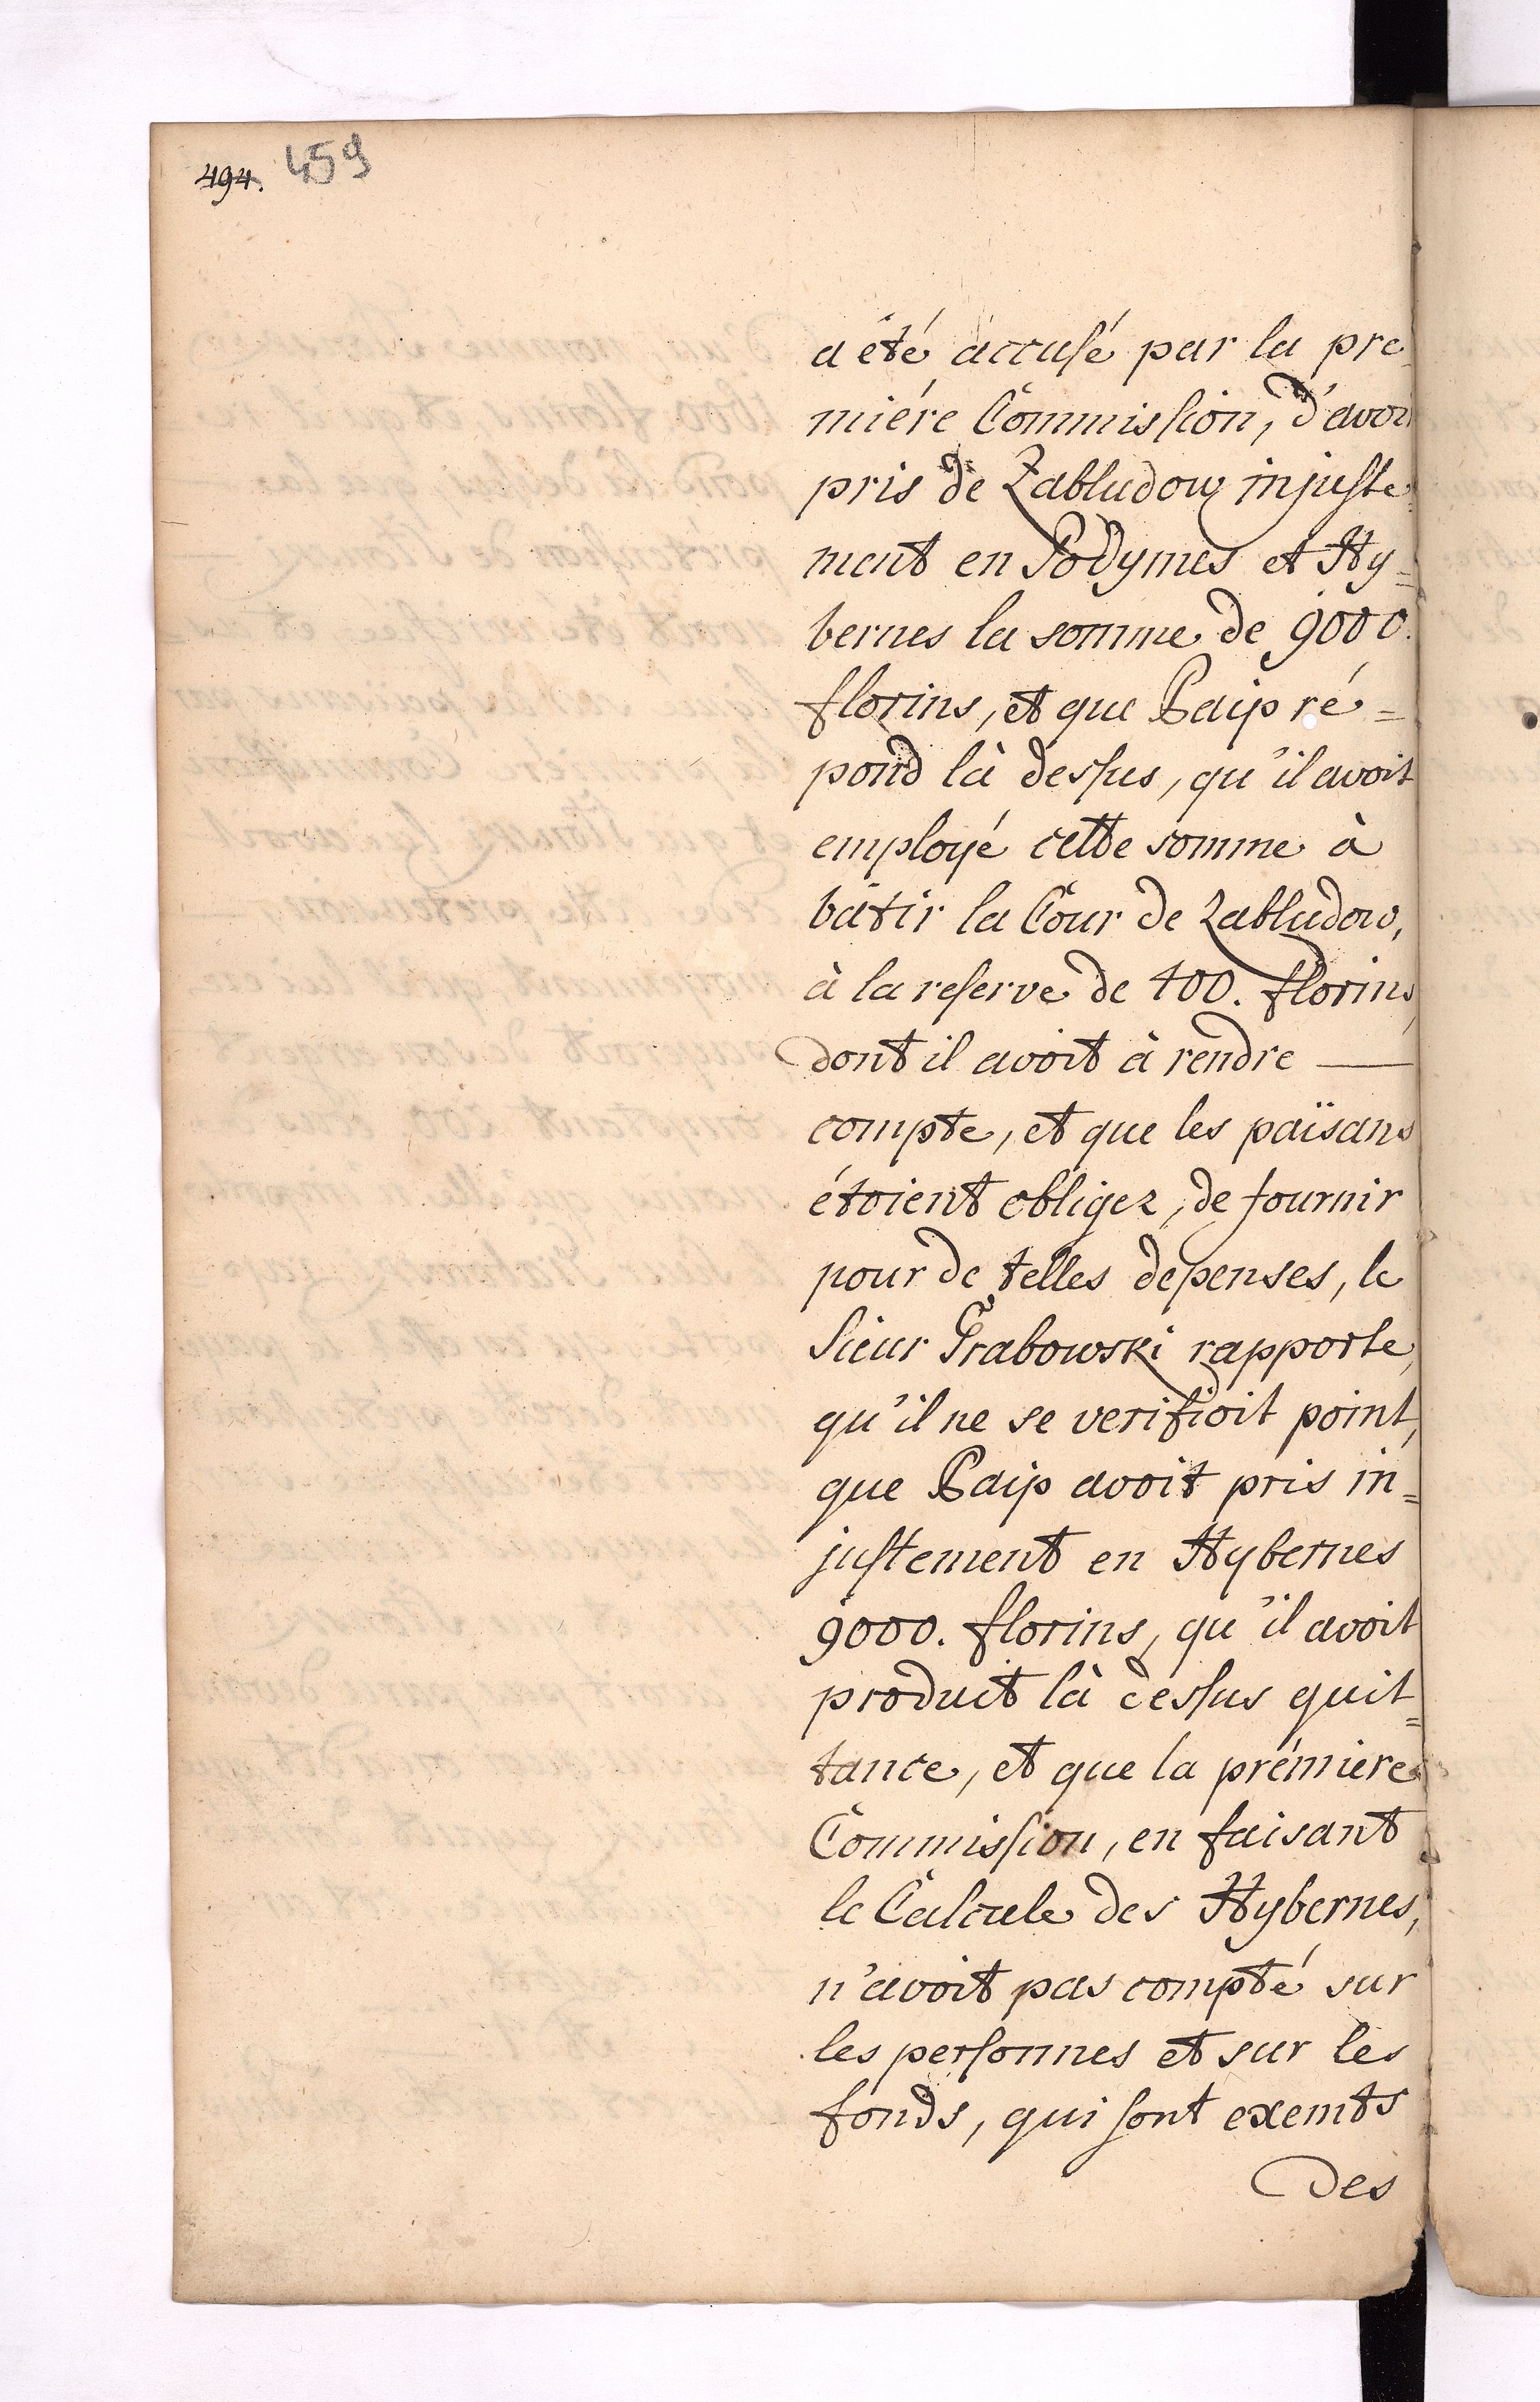 494. 459
a été accusé par la pre
miére Commission, d'avoir
pris de Zabludow injuste
ment en Podymes et Hy=
bernes la somme de 9000.
florins, et que Paip ré=
pond là dessus, qu'il avoit
employé cette somme à
bâtir la Cour de Zabludow,
à la reserve de 400. florins,
dont il avoit à rendre
compte, et que les païsans
étoient obligez, de fournir
pour de telles depenses, le
Sieur Grabowski rapporte,
qu'il ne se verifioit point,
que Paip avoit pris in=
justement en Hybernes
9000. florins, qu'il avoit
produit là dessus quit=
tance, et que la prémiere
Commission, en faisant
le Calcule des Hybernes,
n'avoit pas compté sur
les personnes et sur les
fonds, qui sont exemts
des